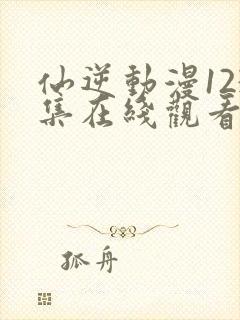 仙逆動漫12
集在綫觀看
孤舟